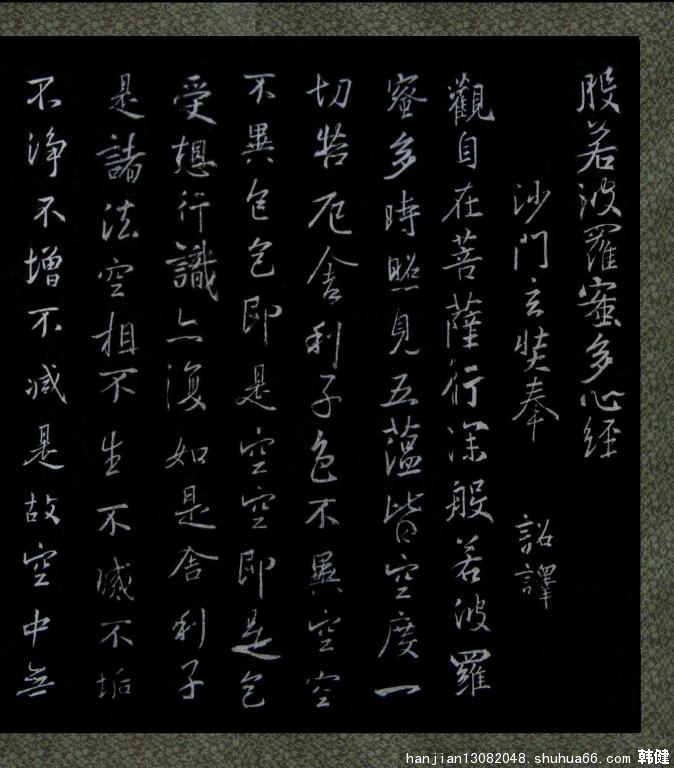 般若波羅蜜多心經
沙門玄奘奉 詔譯
觀自在菩薩行深般若波羅
蜜多時照見五蘊皆空度一
切苦厄舍利子色不異空空
不異色色即是空空即是色
受想行識亦復如是舍利子
是諸法空相不生不滅不垢
不淨不增不減是故空中無
hanjian13082048.shuhua66.com 韩健